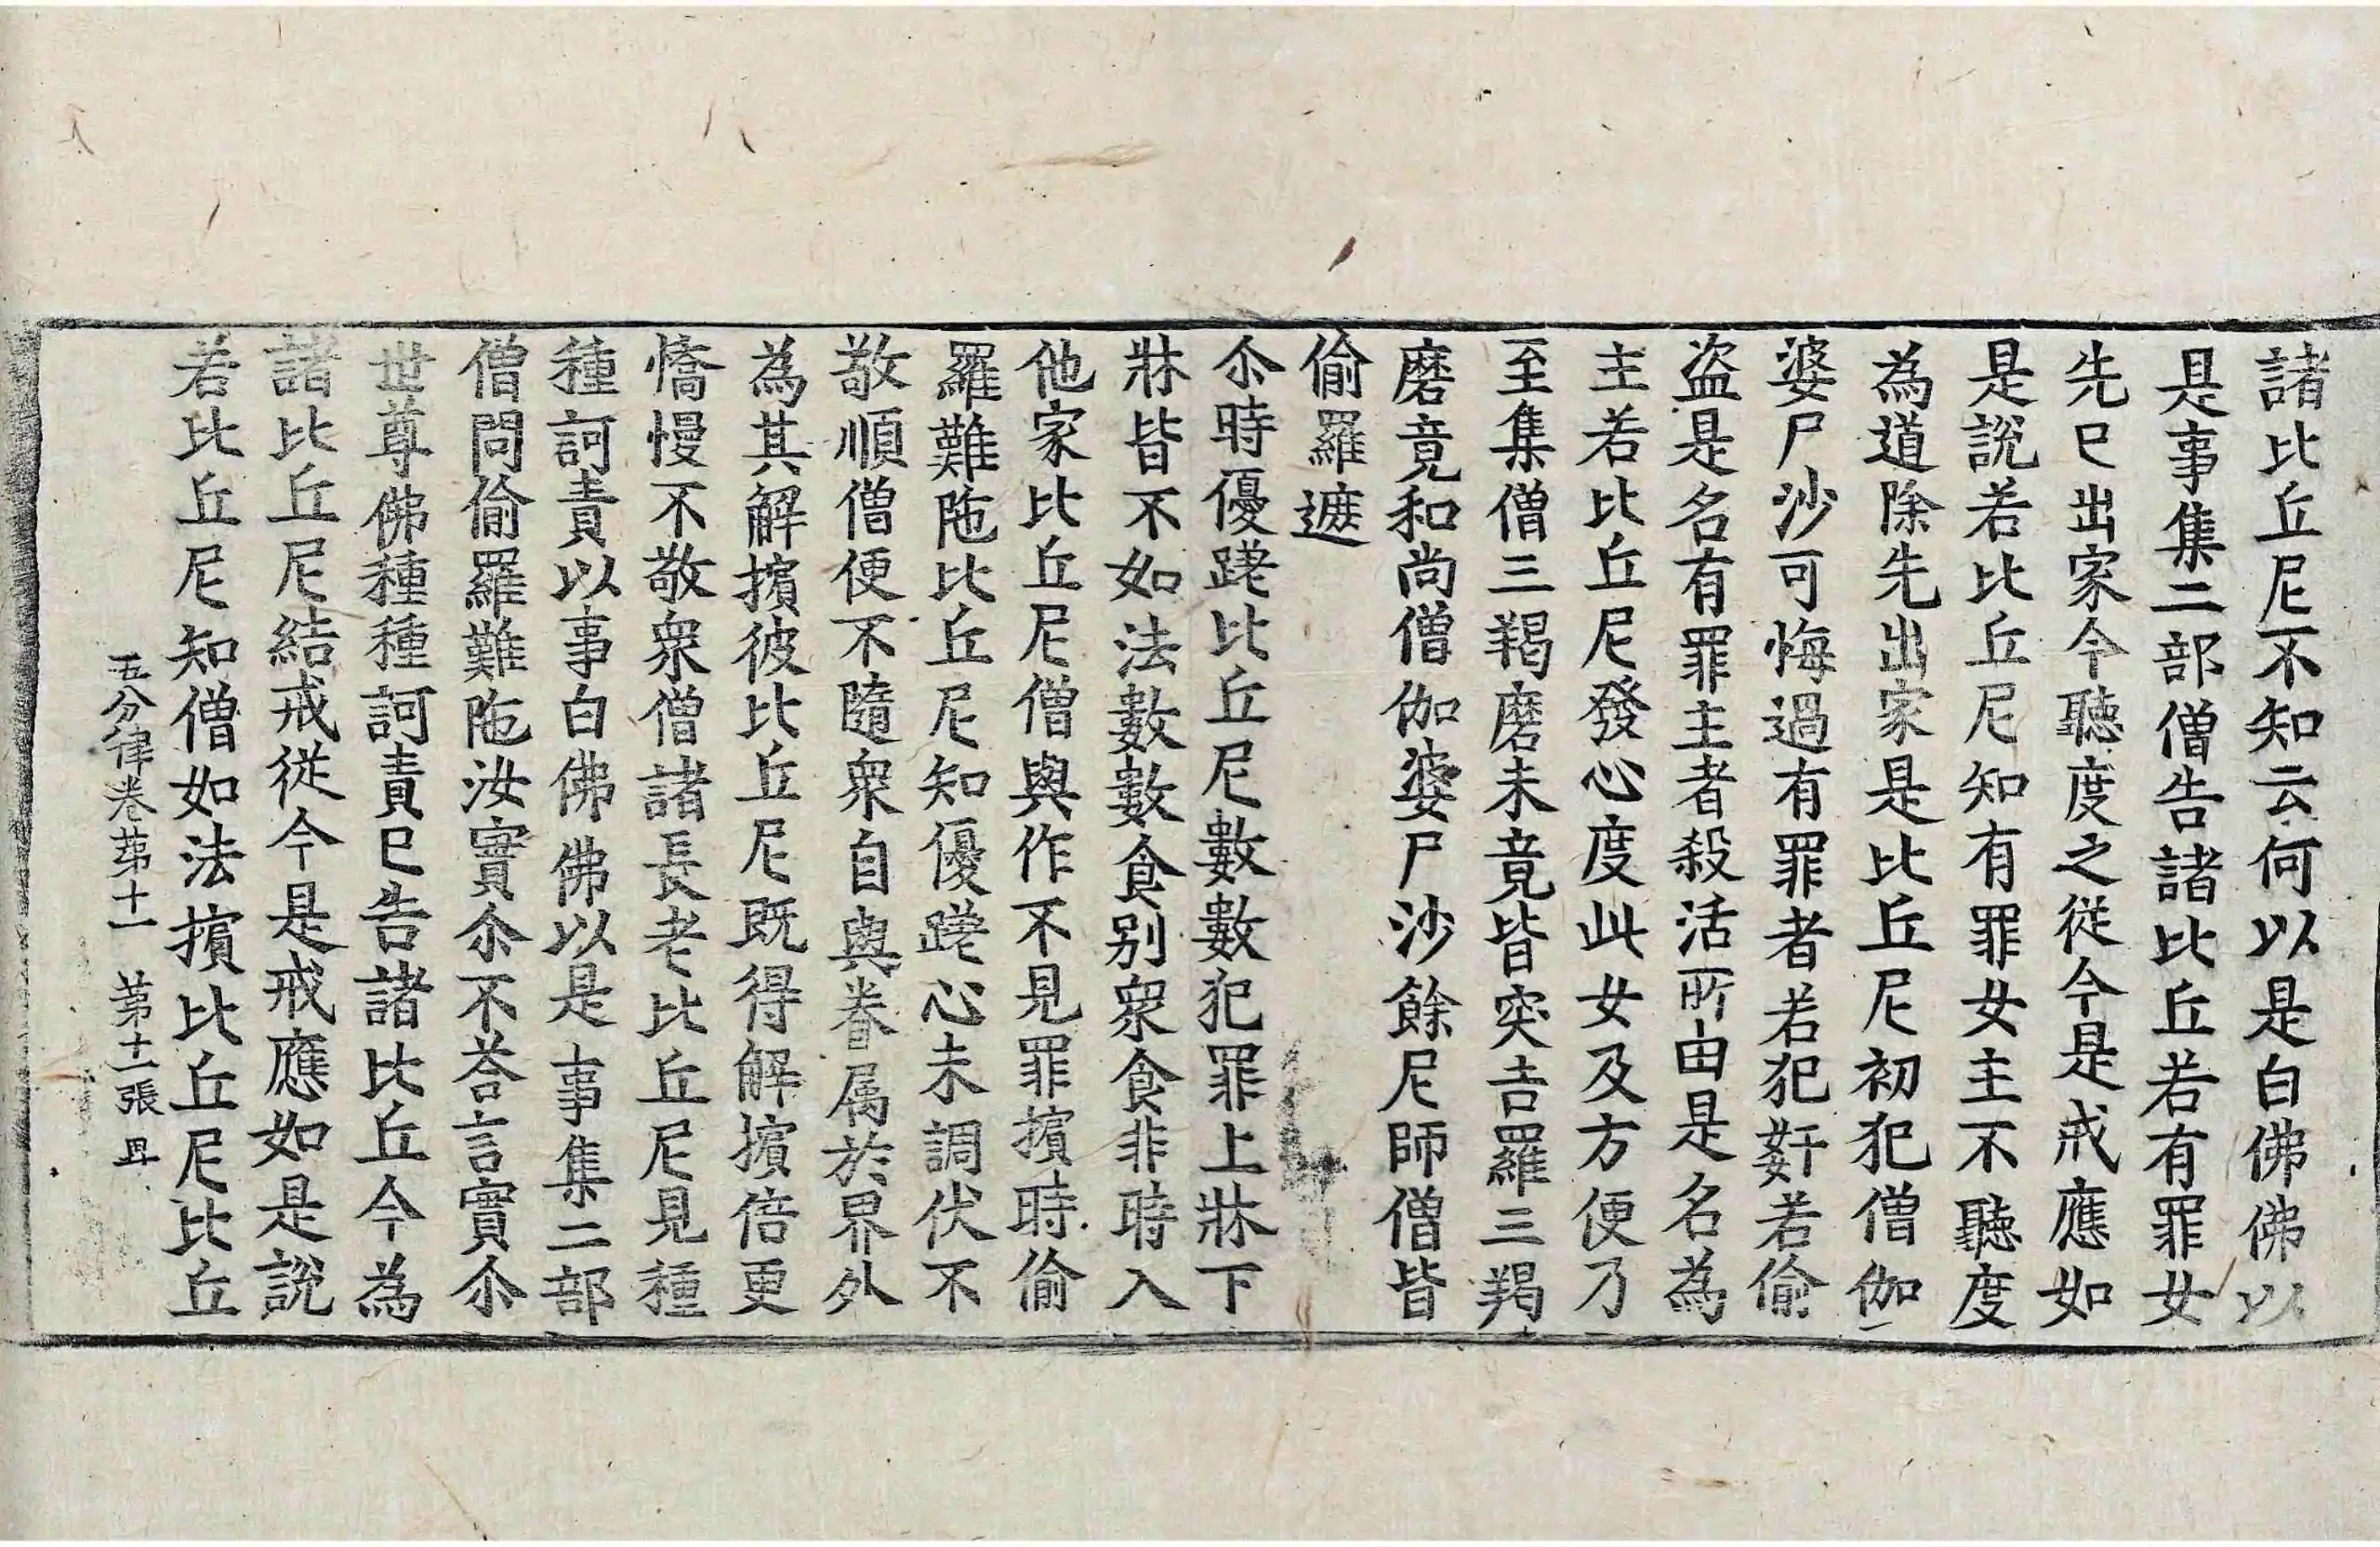 諸比丘尼不知云何以是白佛佛以
是事集二部僧告諸比丘若有罪女
先已出家今聽度之從今是戒應如
是說若比丘尼知有罪女主不聽度
為道除先出家是比丘尼初犯僧伽
婆尸沙可悔過有罪者若犯姧若偷
盜是名有罪主者殺活所由是名為
主若比丘尼發心度此女及方便乃
至集僧三羯磨未竟皆突吉羅三羯
磨竟和尚僧伽婆尸沙餘尼師僧皆
偷羅遮
尒時優蹉比丘尼數數犯罪上牀下
牀皆不如法數數食別衆食非時入
他家比丘尼僧與作不見罪擯時偷
羅難陁比丘尼知優蹉心未調伏不
敬順僧便不隨衆自與眷属於界外
為其解擯彼比丘尼既得解擯倍更
憍慢不敬衆僧諸長老比丘尼見種
種訶責以事白佛佛以是事集二部
僧問偷羅難陁汝實尒不荅言實尒
世尊佛種種訶責已告諸比丘今為
諸比丘尼結戒從今是戒應如是說
若比丘尼知僧如法擯比丘尼比丘
五分律卷苐十一 苐十一張 毌